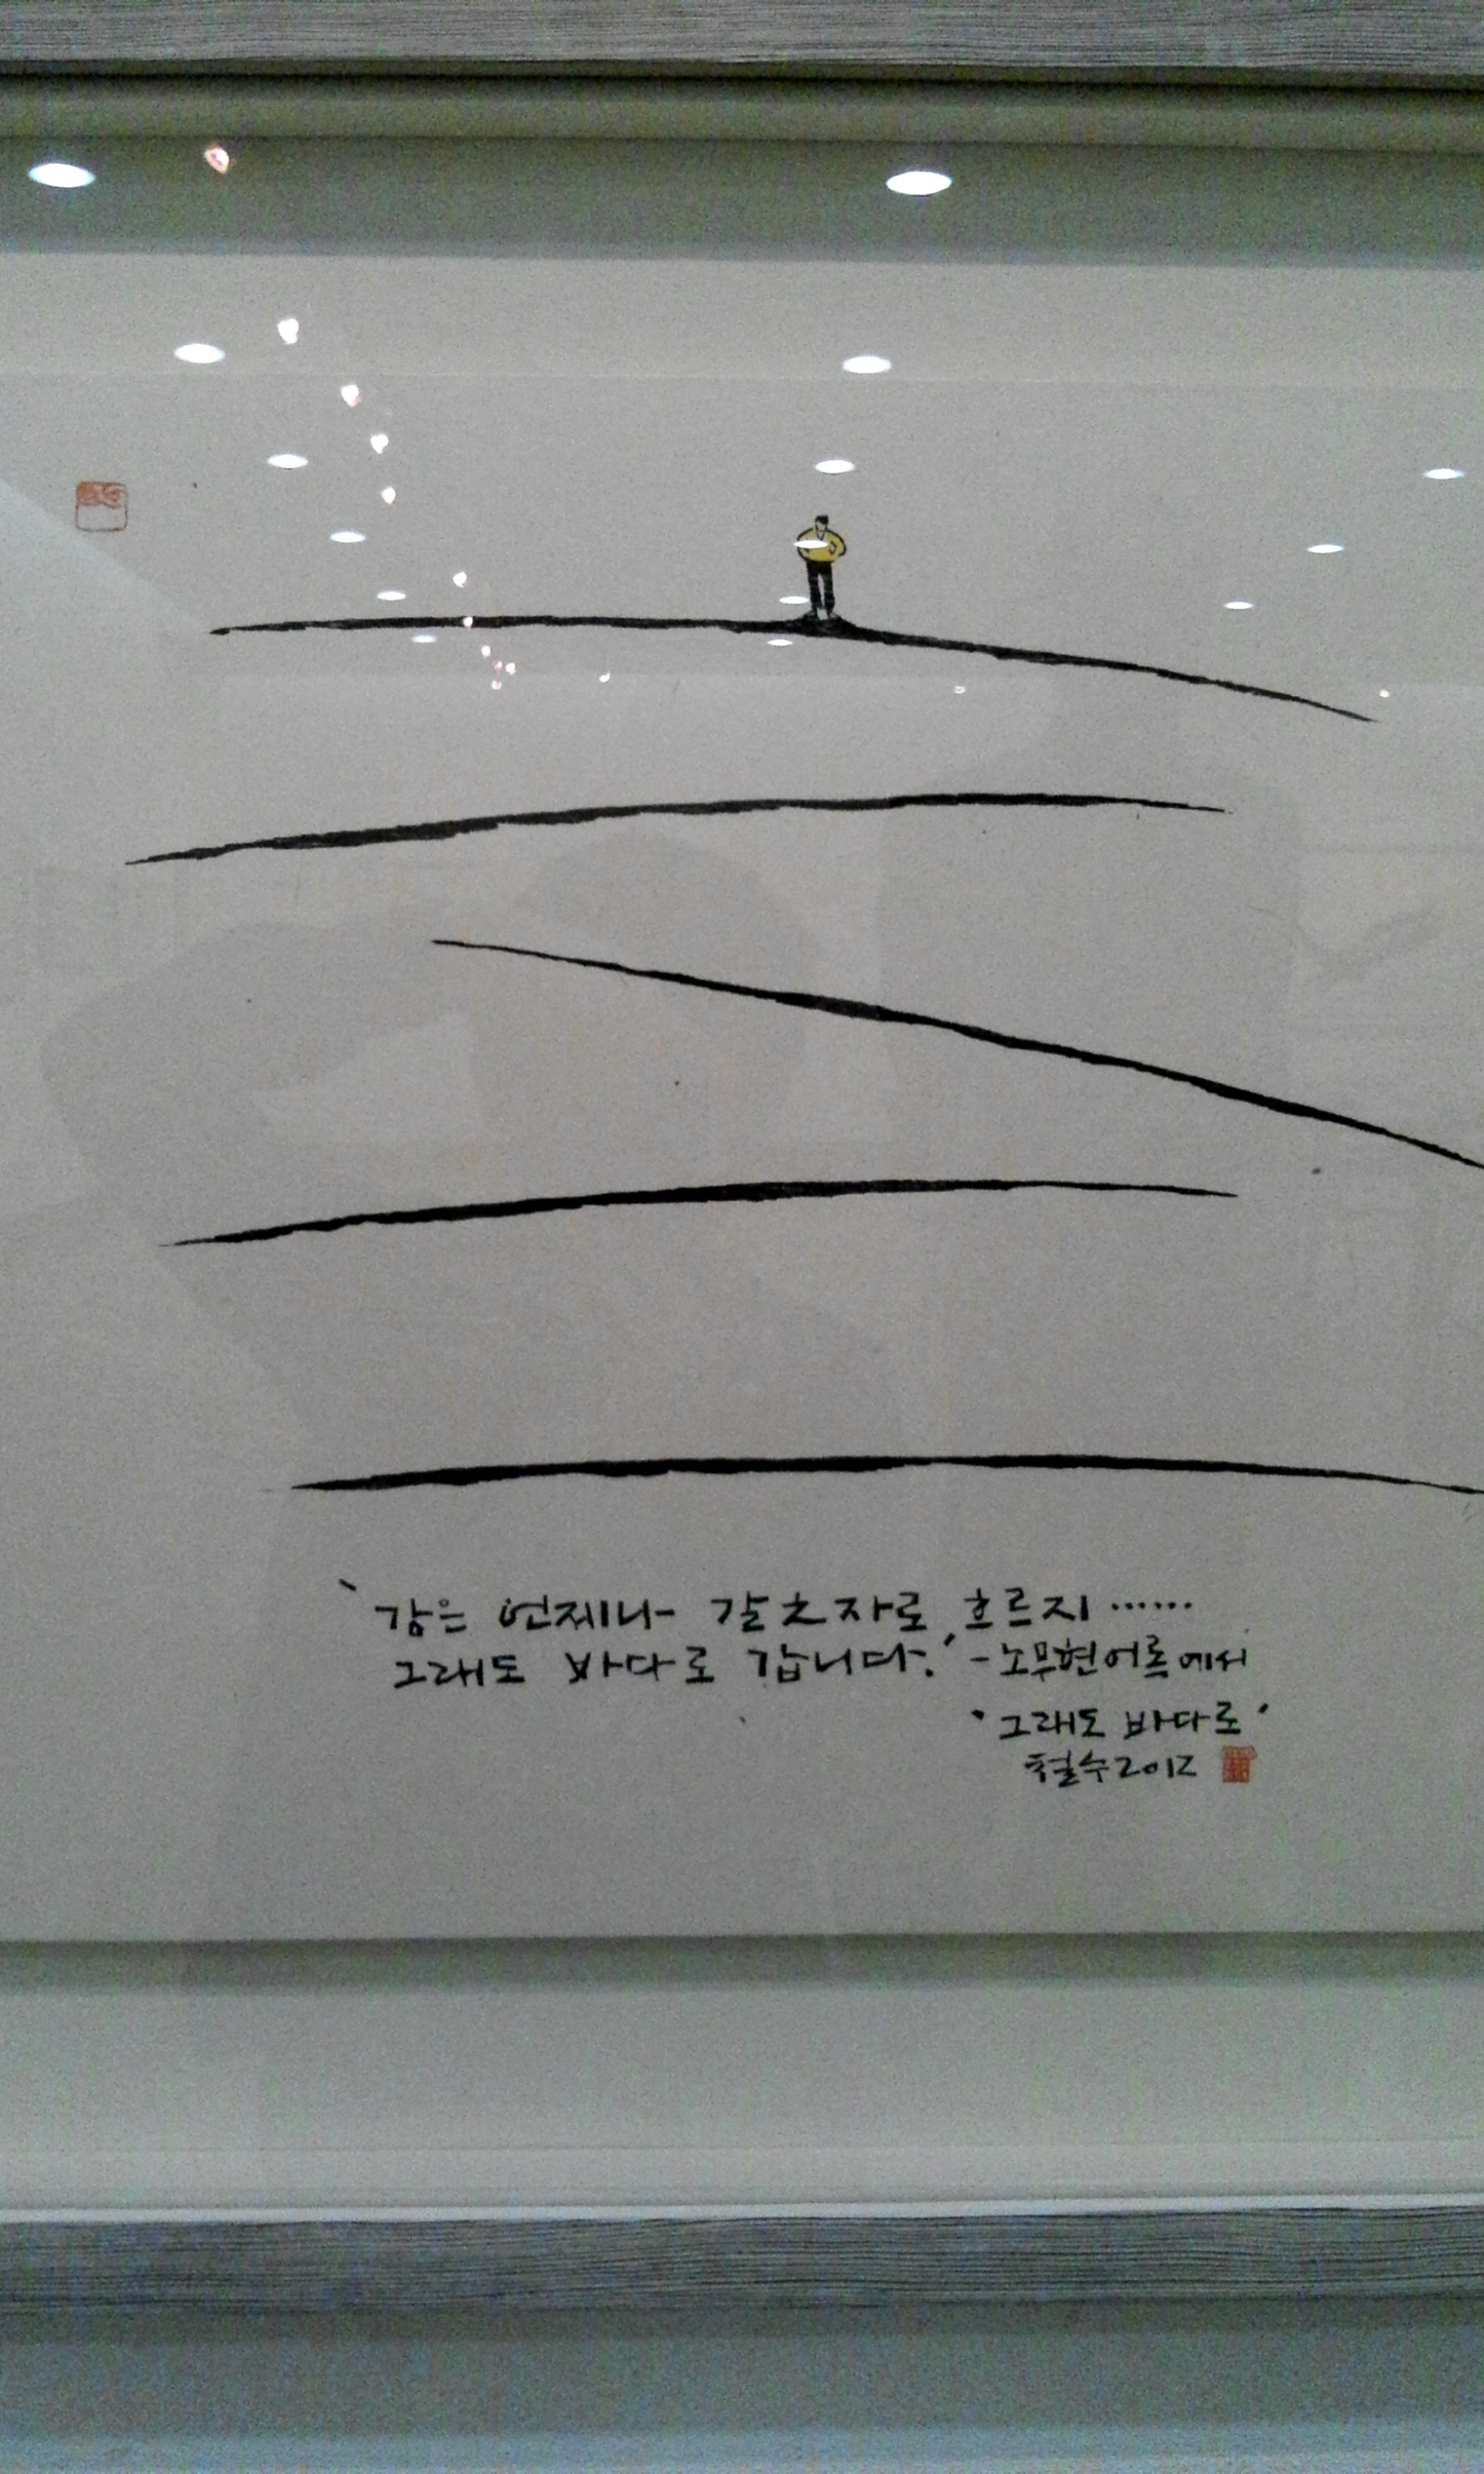 '강은 언제나 갈之자로 흐르지……
그래도 바다로 갑니다.' -노무현어록에서
'그래도 바다로'
철수2012